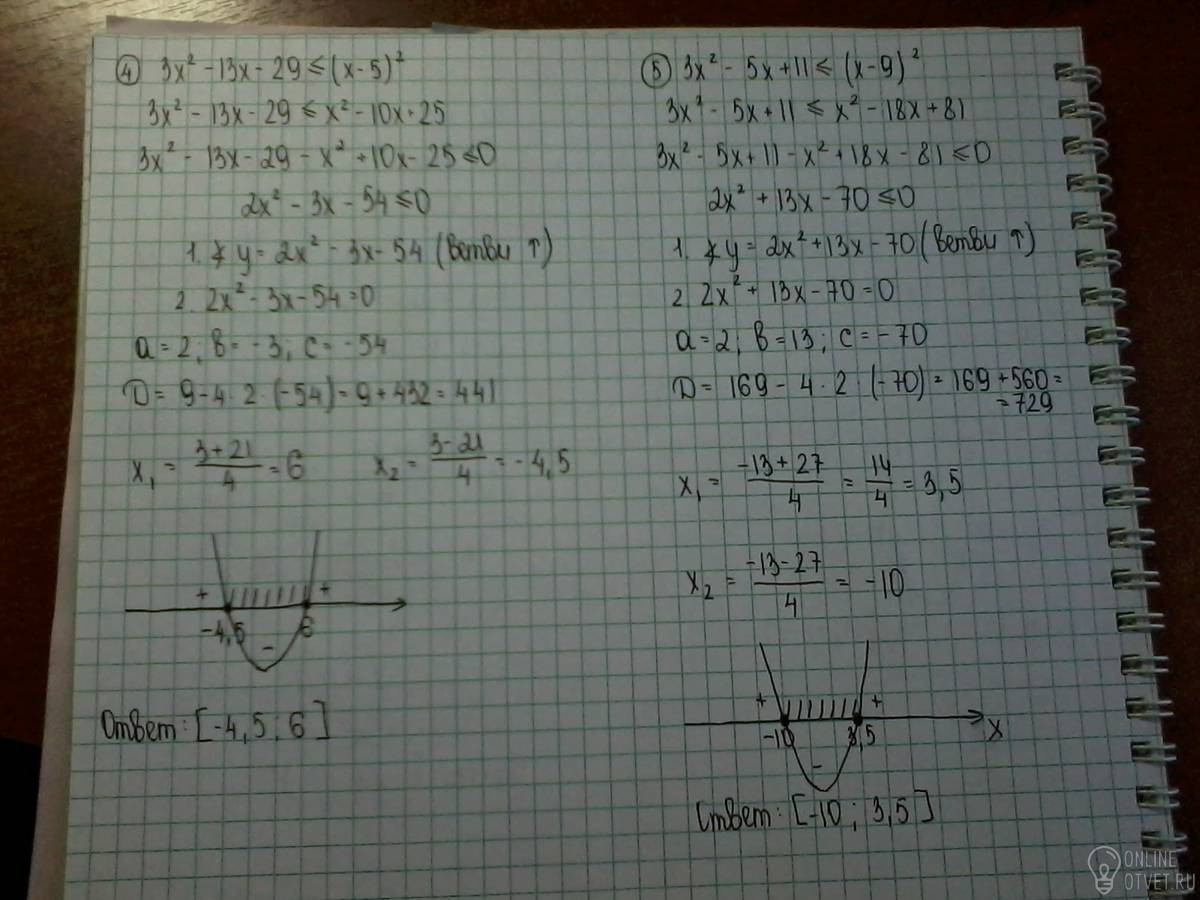 ④ 3x² - 13x - 29 ≤ (x-5)²
3x² - 13x - 29 ≤ x² - 10x + 25
3x² - 13x - 29 - x² + 10x - 25 ≤ 0
2x² - 3x - 54 ≤ 0
1. y = 2x² - 3x - 54 (ветви ↑)
2. 2x² - 3x - 54 = 0
a = 2; в = -3; c = -54
D = 9 - 4 · 2 · (-54) = 9 + 432 = 441
x₁ = (3 + 21)/4 = 6 x₂ = (3 - 21)/4 = -4,5
+ +
-4,5 - 6
Ответ: [-4,5; 6]
⑤ 3x² - 5x + 11 ≤ (x-9)²
3x² - 5x + 11 ≤ x² - 18x + 81
3x² - 5x + 11 - x² + 18x - 81 ≤ 0
2x² + 13x - 70 ≤ 0
1. y = 2x² + 13x - 70 (ветви ↑)
2. 2x² + 13x - 70 = 0
a = 2; в = 13; c = -70
D = 169 - 4 · 2 · (-70) = 169 + 560 =
= 729
x₁ = (-13 + 27)/4 = 14/4 = 3,5
x₂ = (-13 - 27)/4 = -10
+ +
-10 - 3,5 x
Ответ: [-10; 3,5]
ONLINE
OTVET.RU